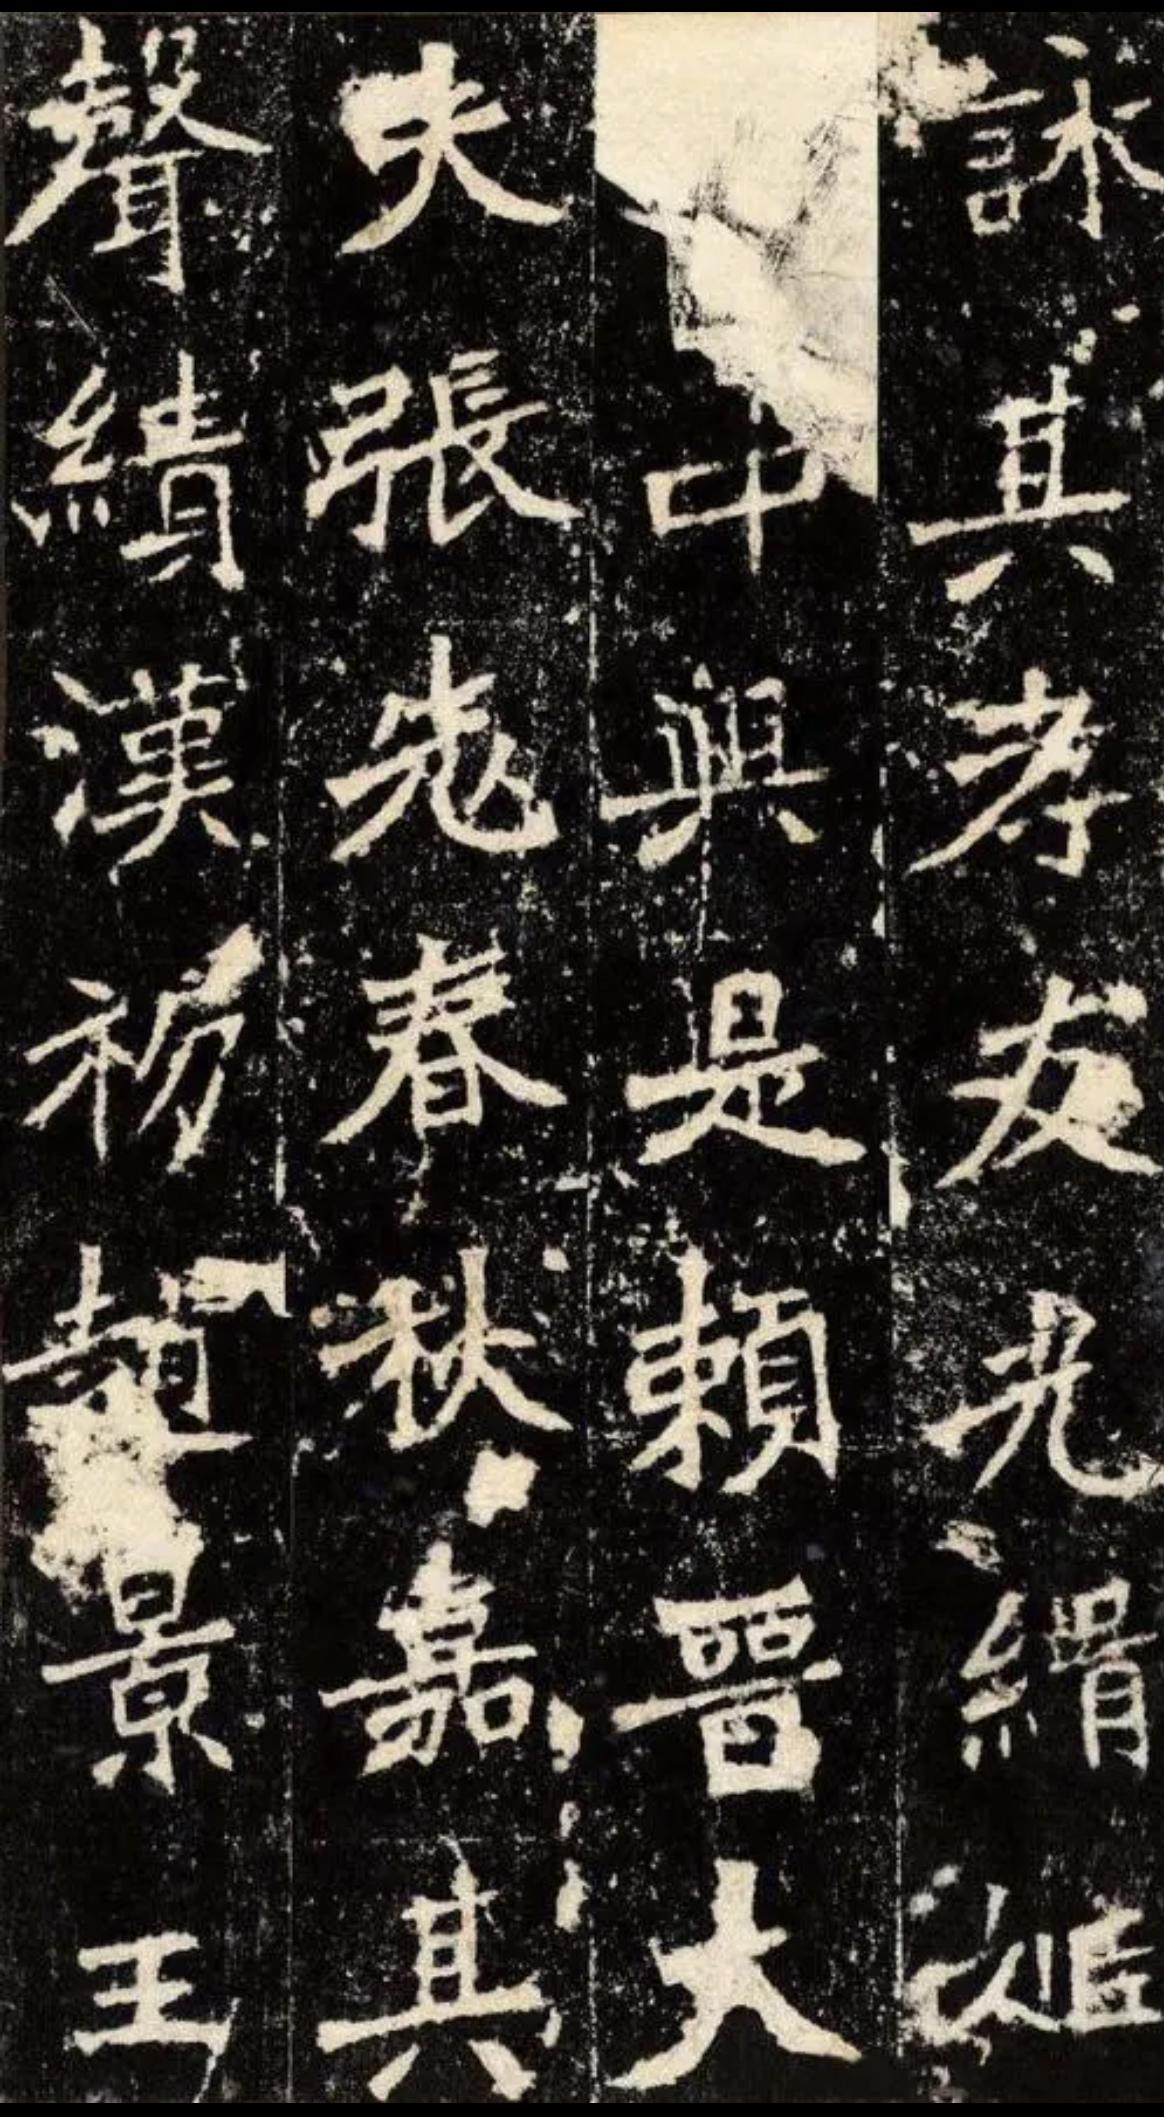 詠其孝友光緝姬
中興是賴晉大
夫張老春秋嘉其
聲績漢初趙景王